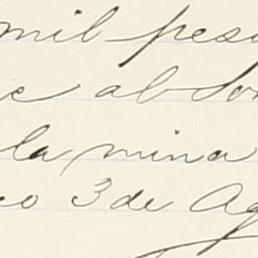 mil peso
e abon
la mina
co 3 de Ag